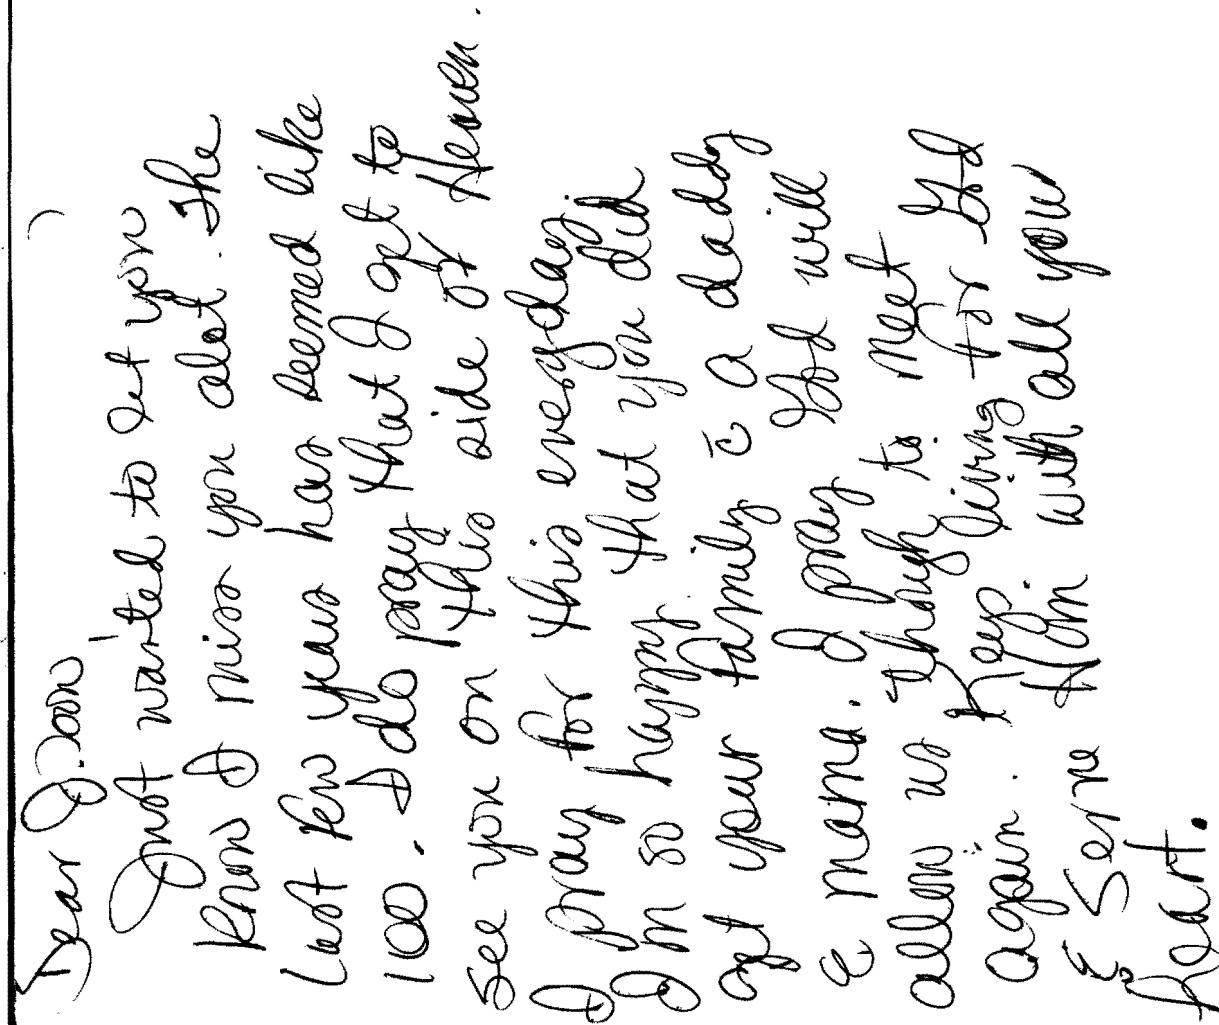 Dear J.
Just wanted to let you
know I miss you alot. The
last few years has seemed like
100. I do pray that I get to
see you on this side of Heaven.
I pray for this everyday.
I'm so happy that you did
get your family c̄ a daddy
& mama. I pray God will
allow us though to meet
again. Keep living for God
& Serve Him with all your
heart.